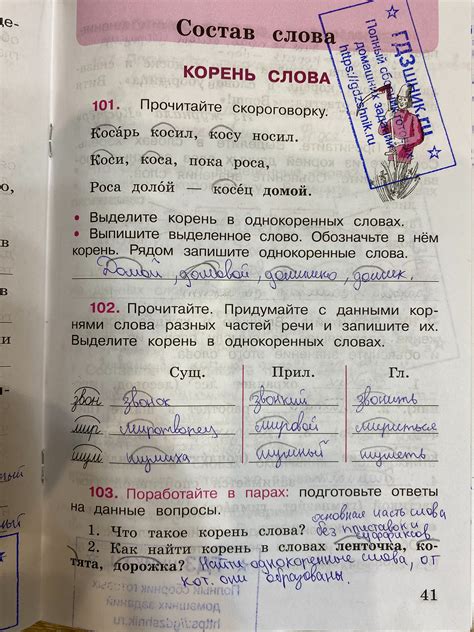 Состав слова
КОРЕНЬ СЛОВА
ГДЗшник.ru
Полный сборник готовых
домашних заданий
https://gdzshnik.ru
101. Прочитайте скороговорку.
Косарь косил, косу носил.
Коси, коса, пока роса,
Роса долой — косец домой.
• Выделите корень в однокоренных словах.
• Выпишите выделенное слово. Обозначьте в нём
корень. Рядом запишите однокоренные слова.
Домой, домовой, домишко, домик.
102. Прочитайте. Придумайте с данными кор-
нями слова разных частей речи и запишите их.
Выделите корень в однокоренных словах.
Сущ. Прил. Гл.
звон звонок звонкий звонить
мир миротворец мировой мириться
шум шумиха шумный шуметь
103. Поработайте в парах: подготовьте ответы
на данные вопросы.
основная часть слова
1. Что такое корень слова? без приставок и
суффиксов
2. Как найти корень в словах ленточка, ко-
тята, дорожка? Найти однокоренные слова, от
кот. они образованы.
Полный сборник готовых
домашних заданий
41